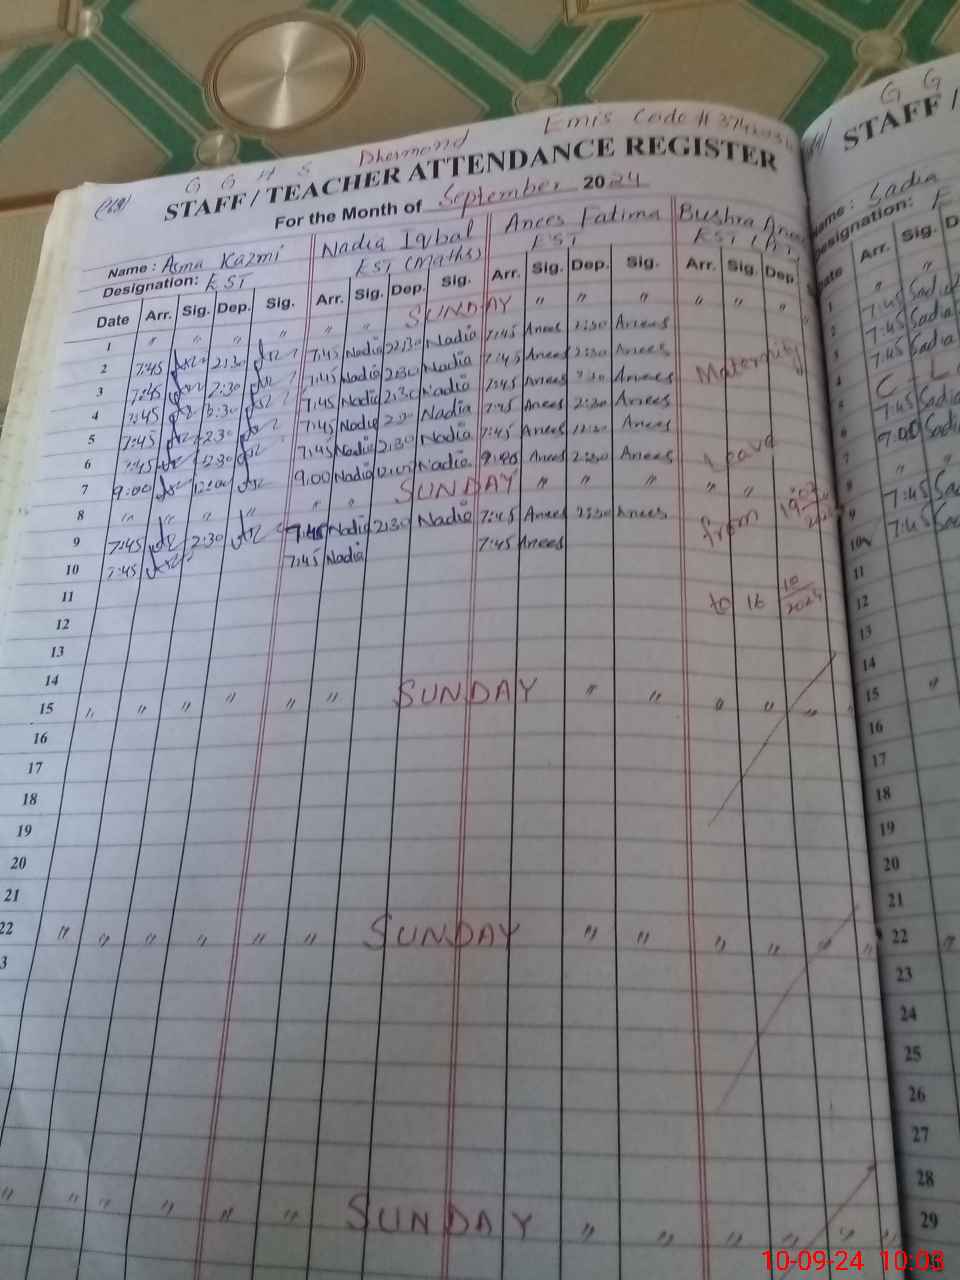 G G H S Dhermond Emis Code #
STAFF / TEACHER ATTENDANCE REGISTER
For the Month of September 2024
Name : Asma Kazmi Nadia Iqbal Anees Fatima Bushra
Designation: EST EST (Maths) EST EST
Date Arr. Sig. Dep. Sig. Arr. Sig. Dep. Sig. Arr. Sig. Dep. Sig. Arr. Sig. Dep.
1 " " " " " " SUNDAY " " " " " "
2 7:45 2:30 7:45 Nadia 2:30 Nadia 7:45 Anees 2:30 Anees
3 7:45 2:30 7:45 Nadia 2:30 Nadia 7:45 Anees 2:30 Anees Maternity
4 7:45 2:30 7:45 Nadia 2:30 Nadia 7:45 Anees 2:30 Anees
5 7:45 2:30 7:45 Nadia 2:30 Nadia 7:45 Anees 2:30 Anees
6 7:45 2:30 7:45 Nadia 2:30 Nadia 7:45 Anees 12:30 Anees
7 9:00 12:00 9:00 Nadia 12:00 Nadia Anees Anees Leave
8 " " " " " " SUNDAY " " " " "
9 7:45 2:30 7:45 Nadia 2:30 Nadia 7:45 Anees 2:30 Anees from
10 7:45 7:45 Nadia 7:45 Anees
11
12 to 16 10/2024
13
14
15 " " " " " " SUNDAY " " " " "
16
17
18
19
20
21
22 " " " " " " SUNDAY " " " " " "
3
" " " " " " SUNDAY " " " " "
G G
STAFF /
Name : Sadia
Designation:
Date Arr. Sig.
1 " "
2 7:45 Sadia
3 7:45 Sadia
4 C - L
5 7:45 Sadia
6 7:00 Sadia
7 " "
8 7:45
9 7:45
10
11
12
13
14
15 "
16
17
18
19
20
21
22 "
23
24
25
26
27
28
29
10-09-24 10:03